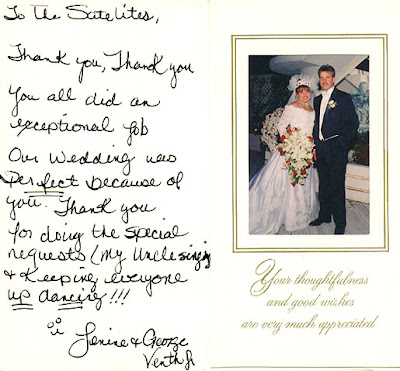 To The Satelites,
Thank you, Thank you
You all did an
exceptional job
Our Wedding was
perfect because of
you. Thank you
for doing the special
requests (my Uncle singing
& Keeping everyone
up dancing!!!
Jenine & George
Your thoughtfulness
and good wishes
are very much appreciated